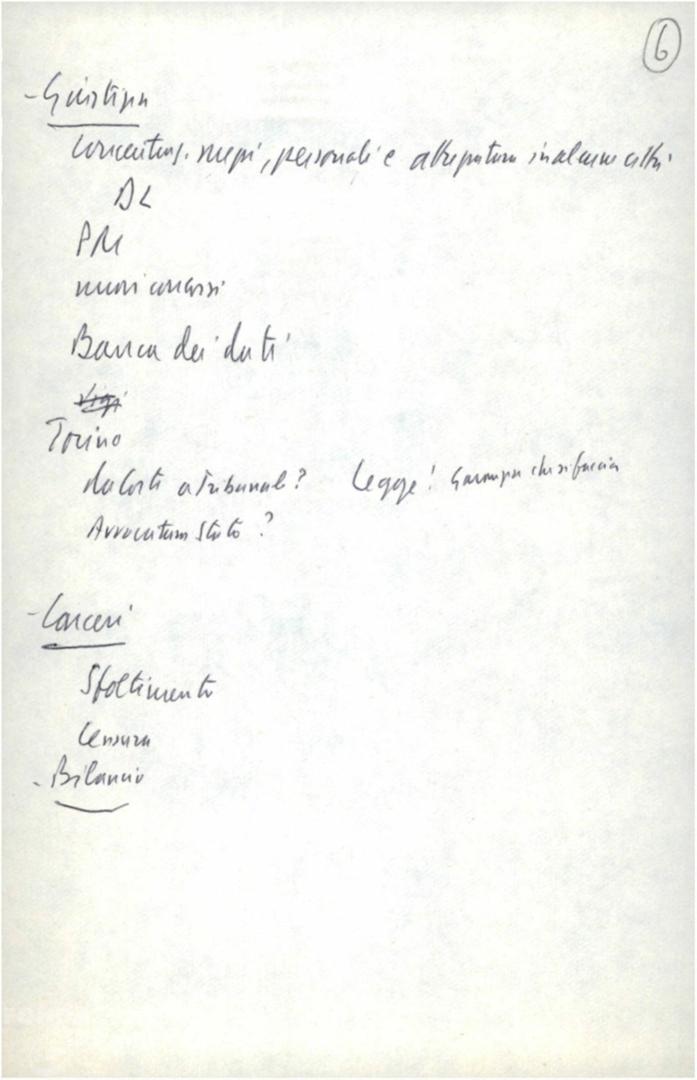 6
- Giustizia
concentraz. mezzi, personale e attrezzature in alcune città
DL
PM
nuovi concorsi
Banca dei dati
Torino
da Corte a Tribunale? Legge! Garanzia che si faccia
Avvocatura Stato?
- Carceri
Sfoltimento
Censura
- Bilancio